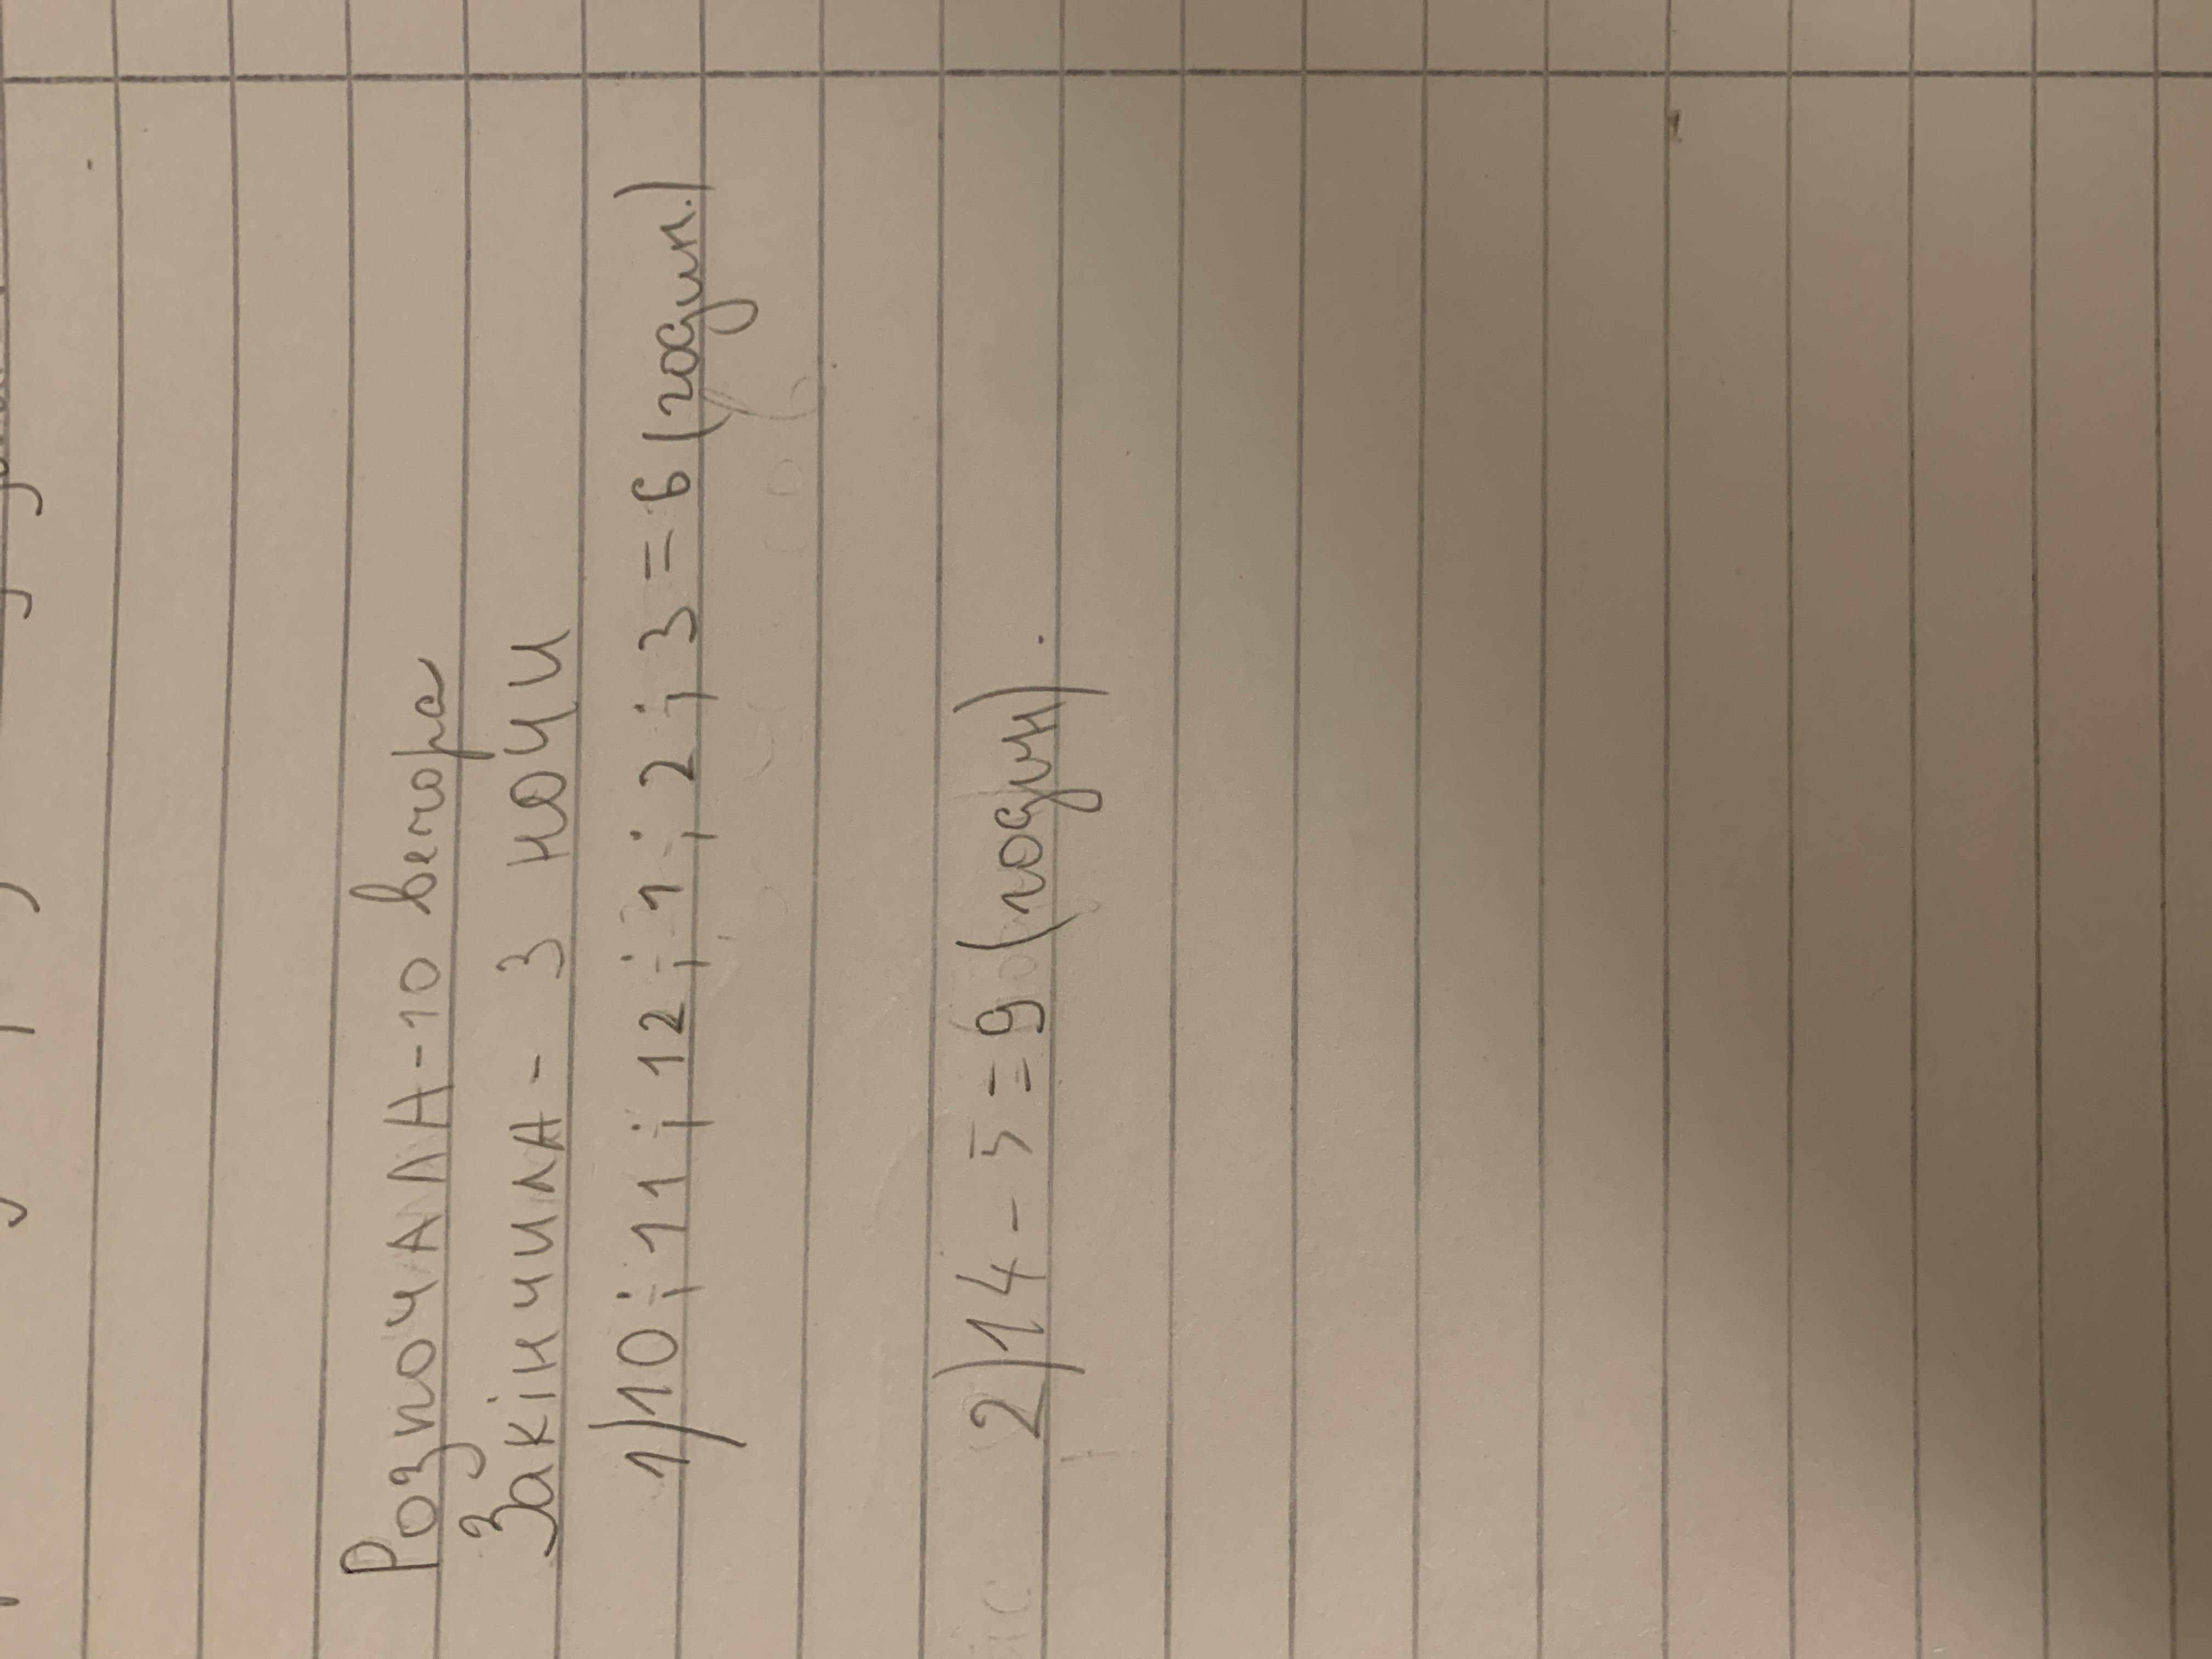 РозпочАЛА-10 вечора
Закінчила - 3 ночи
1) 10 ; 11 ; 12 ; 1 ; 2 ; 3 = 6 (годин.)
2) 14 - 5 = 9 (годин).